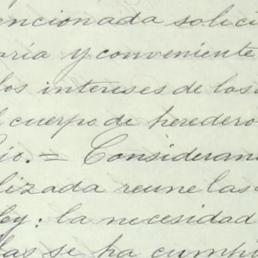 encionada solici
aría y conveniente
los intereses de los
l cuerpo de heredero
cio. = Consideran
lizada reune las
ley: la necesidad
las se ha cumpli